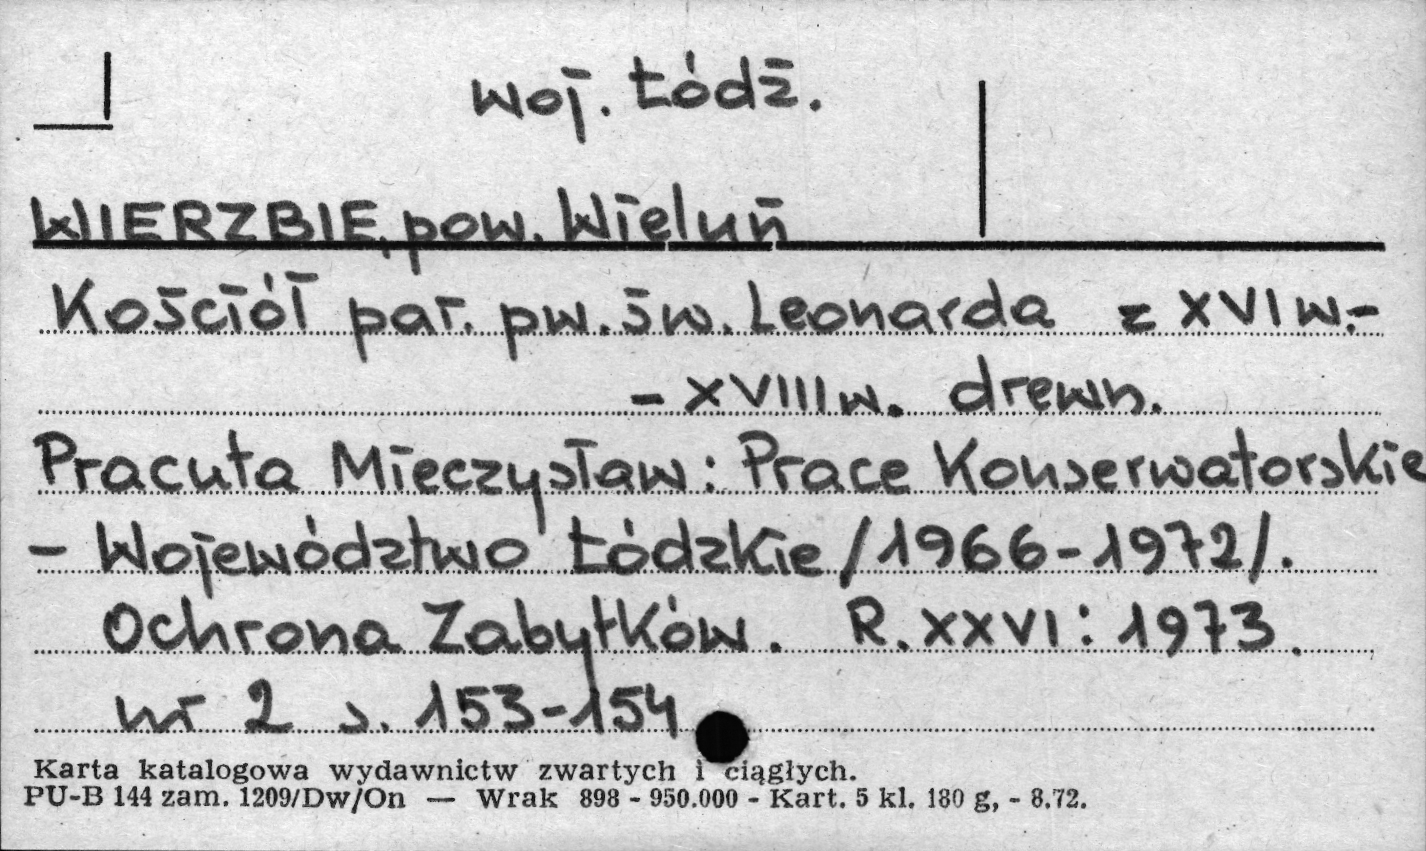 woj. Łódź.
WIERZBIE, pow. Wieluń
Kościół par. pw. św. Leonarda z XVI w.-
- XVIII w. drewn.
Pracuta Mieczysław: Prace Konserwatorskie
- Województwo Łódzkie /1966-1972/.
Ochrona Zabytków. R. XXVI: 1973.
nr 2 s. 153-154
Karta katalogowa wydawnictw zwartych i ciągłych.
PU-B 144 zam. 1209/Dw/On — Wrak 898 - 950.000 - Kart. 5 kl. 180 g, - 8.72.